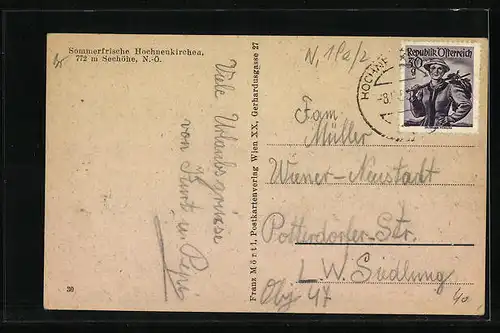 Sommerfrische Hochneukirchen,
772 m Seehöhe, N.-Ö.
Viele Urlaubsgrüsse
von Kurt u Pepi
30
Franz Mörtl, Postkartenverlag Wien XX, Gerhardusgasse 27
N, 11a/2
HOCHNE
Republik Österreich
30
g
Fam
Müller
Wiener-Neustadt
Potterdorfer-Str.
L. W. Siedlung
Obj 47